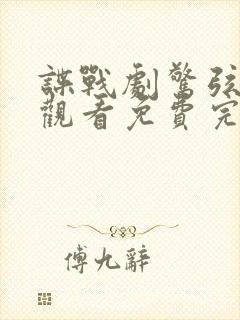 諜戰劇驚弦
觀看免費完
傅九辭